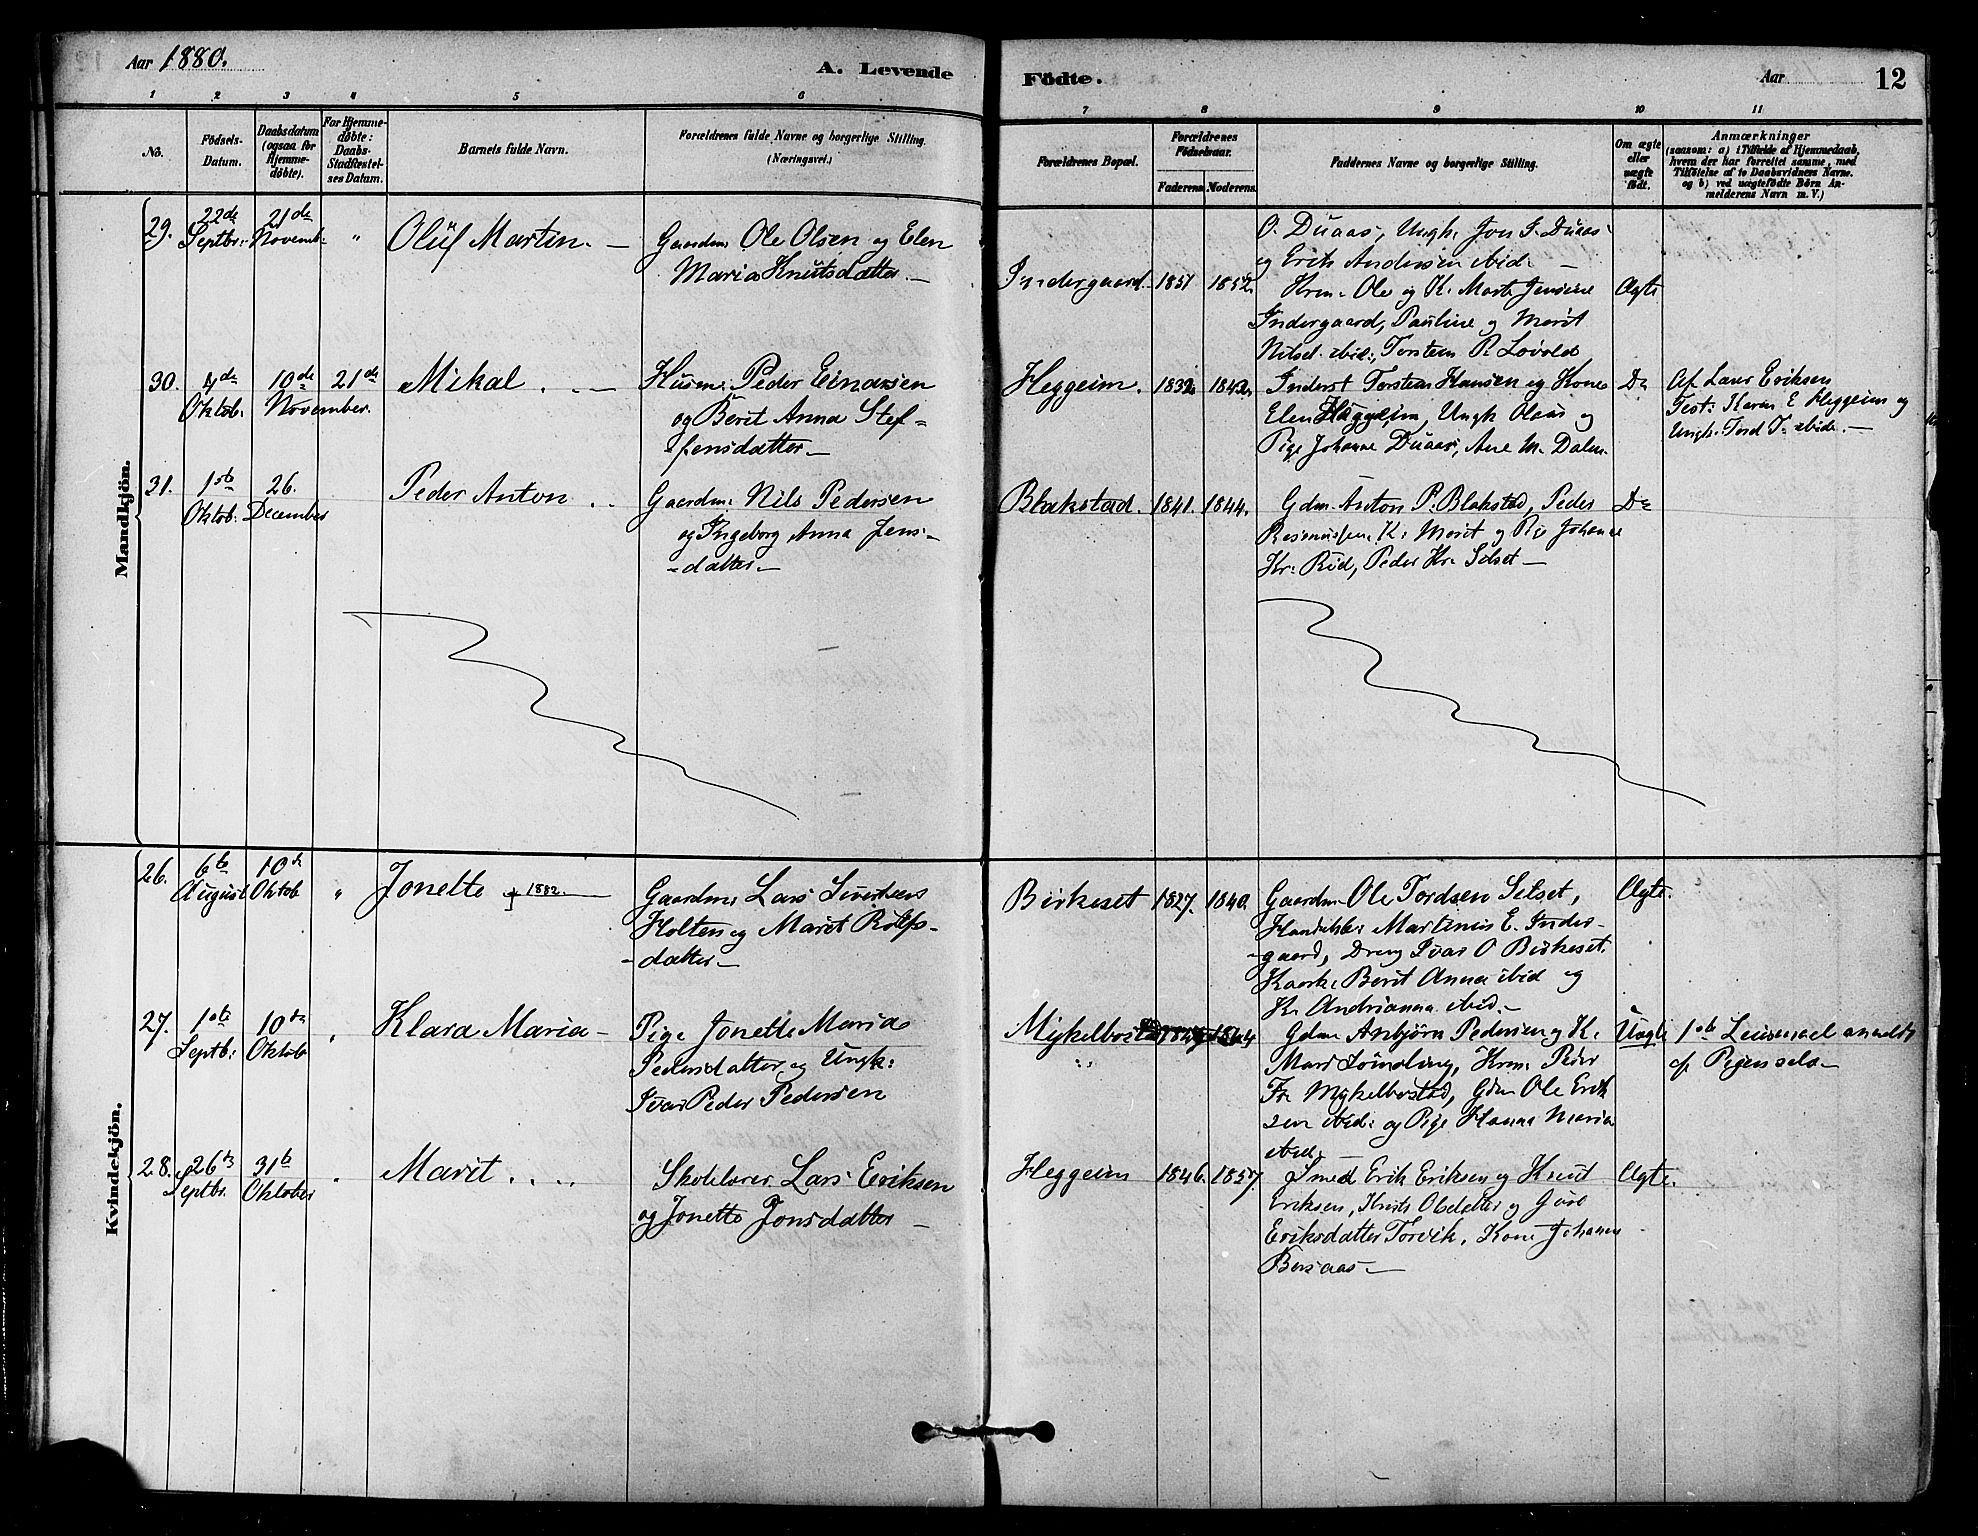 Aar 1880.
A. Levende
1 2 3 4 5 6
No.
Födsels-
Datum.
Daabsdatum
(ogsaa for
Hjemme-
døbte).
For Hjemme-
døbte:
Daabs-
Stadfæstel-
ses Datum.
Barnets fulde Navn.
Forældrenes fulde Navne og borgerlige Stilling.
(Næringsvei.)
Mandkjön.
29. 22de Septbr: 21de Novemb: " Oluf Martin. —
Gaardm: Ole Olsen og Elen
Maria Knutsdatter. —
30. 4de Oktob. 10de November. 21de Mikal . . —
Husm: Peder Einarsen
og Berit Anna Stef-
fensdatter —
31. 1ste Oktob: 26. December Peder Anton . .
Gaardm: Nils Pedersen
og Ingeborg Anna Jens-
-datter. —
Kvindekjön.
26. 6te August 10de Oktob " Jonette † 1882.
Gaardm: Lars Sivertsen
Holten og Marit Rolfs-
-datter —
27. 1ste Septb: 10de Oktob " Klara Maria —
Pige Jonette Maria
Pedersdatter og Ungk:
Ivar Peder Pedersen
28. 26de Septbr. 31te Oktober " Marit . . . .
Skolelærer Lars Eriksen
og Jonette Jonsdatter —
Födte.
Aar
12
7 8 9 10 11
Forældrenes Bopæl.
Forældrenes
Födselsaar.
Faderens Moderens
Faddernes Navne og borgerlige Stilling.
Om ægte
eller
uægte
født.
Anmærkninger
(saasom: a) i Tilfælde af Hjemmedaab,
hvem der har forrettet samme, med
Tilføielse af to Daabsvidners Navne.
og b) ved uægtefödte Börn An-
melderens Navn m. V.)
O. Duaas, Ungk. Jon J. Duaas
og Erik Andersen ibid —
Indergaard. 1851 1852. Krm. Ole og K. Marte Jensine Ægte
Indergaard, Pauline og Marit
Nilsd. ibid:, Torstein P. Løvold
Heggeim. 1832. 1842. Inderst Torstein Hansen og Kone Do Af Lærer Eriksen
Elen Heggeim, Ungk Olaus og Test: Karen E Heggeim og
Pige Johanne Duaas, Ane M. Dalen. Ungk. Tord T. ibid. —
Blakstad. 1841. 1844. Gdm. Anton P. Blakstad, Peder Do
Rasmussen K. Marit og Pig Johanne
Kr: Rød, Peder Kr. Selset —
Birkeset 1827. 1840. Gaardm. Ole Tordsen Selset, Ægte.
Handelsbr Martinus E. Inder-
-gaard, Dreng Ivar O Birkeset.
Kaark: Berit Anna ibid og
K. Andrianna ibid. —
Mykelbostad 1844 Gdm Anbjørn Pedersen og K. Uægte 1ste Leiermaal anmeldt
Mari Søndling, Krm. Peder af Pigen selv —
Fr Mykelbostad, Gdm Ole Erik
sen ibid: og Pige Hanna Maria
ibid: —
Heggeim 1846. 1857. Smed Erik Eriksen og Knut Ægte.
Eriksen, Kirsti Olsdatter og Jøre
Eriksdatter Torvik, Kone Johanna
Bersaas —